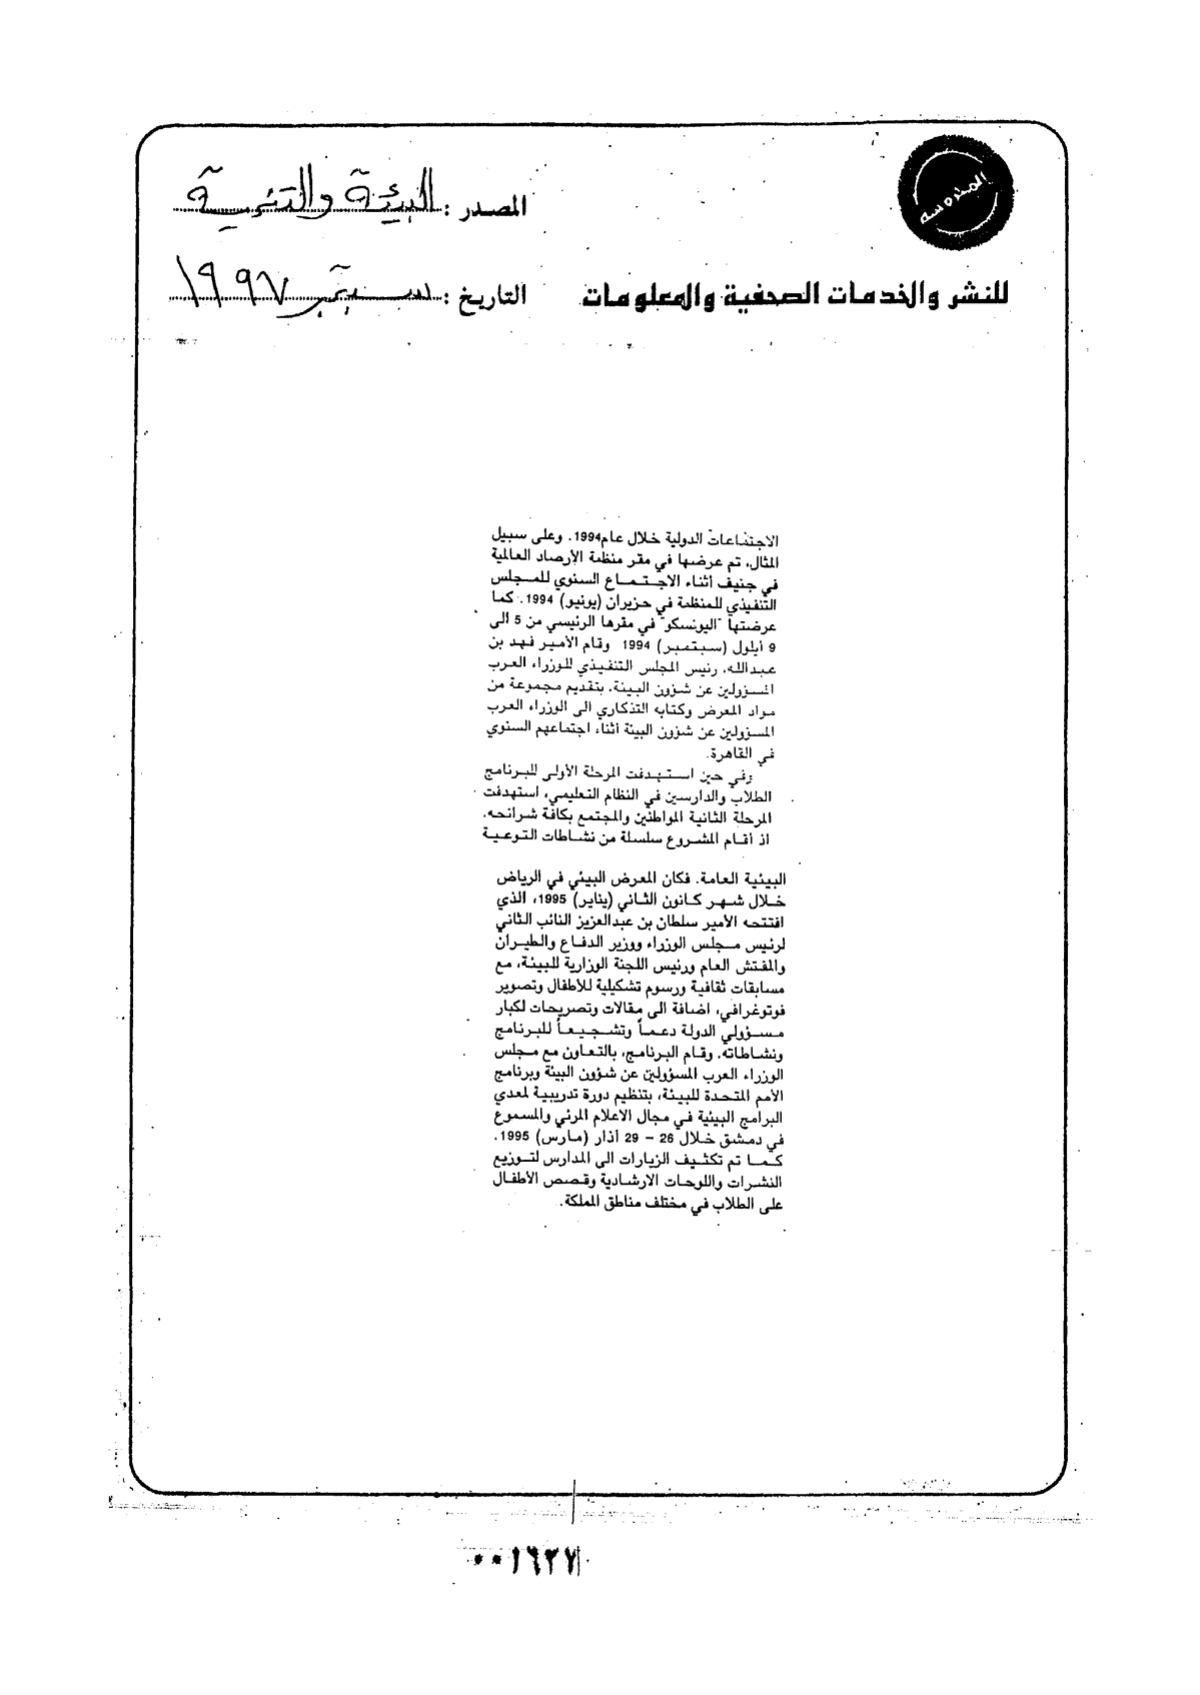 المصدر : البيئة والتنمية
للنشر والخدمات الصحفية والمعلومات
التاريخ : سبتمبر ١٩٩٧
الاجتماعات الدولية خلال عام 1994. وعلى سبيل
المثال، تم عرضها في مقر منظمة الأرصاد العالمية
في جنيف أثناء الاجتماع السنوي للمجلس
التنفيذي للمنظمة في حزيران (يونيو) 1994. كما
عرضتها "اليونسكو" في مقرها الرئيسي من 5 الى
9 أيلول (سبتمبر) 1994 وقام الأمير فهد بن
عبدالله، رئيس المجلس التنفيذي للوزراء العرب
المسؤولين عن شؤون البيئة، بتقديم مجموعة من
مواد المعرض وكتابه التذكاري الى الوزراء العرب
المسؤولين عن شؤون البيئة أثناء اجتماعهم السنوي
في القاهرة.
وفي حين استهدفت المرحلة الأولى للبرنامج
الطلاب والدارسين في النظام التعليمي، استهدفت
المرحلة الثانية المواطنين والمجتمع بكافة شرائحه.
اذ أقام المشروع سلسلة من نشاطات التوعية
البيئية العامة. فكان المعرض البيئي في الرياض
خلال شهر كانون الثاني (يناير) 1995، الذي
افتتحه الأمير سلطان بن عبدالعزيز النائب الثاني
لرئيس مجلس الوزراء ووزير الدفاع والطيران
والمفتش العام ورئيس اللجنة الوزارية للبيئة، مع
مسابقات ثقافية ورسوم تشكيلية للأطفال وتصوير
فوتوغرافي، اضافة الى مقالات وتصريحات لكبار
مسؤولي الدولة دعماً وتشجيعاً للبرنامج
ونشاطاته. وقام البرنامج، بالتعاون مع مجلس
الوزراء العرب المسؤولين عن شؤون البيئة وبرنامج
الأمم المتحدة للبيئة، بتنظيم دورة تدريبية لمعدي
البرامج البيئية في مجال الاعلام المرئي والمسموع
في دمشق خلال 26 – 29 آذار (مارس) 1995.
كما تم تكثيف الزيارات الى المدارس لتوزيع
النشرات واللوحات الارشادية وقصص الأطفال
على الطلاب في مختلف مناطق المملكة.
٠٠١٦٢٧